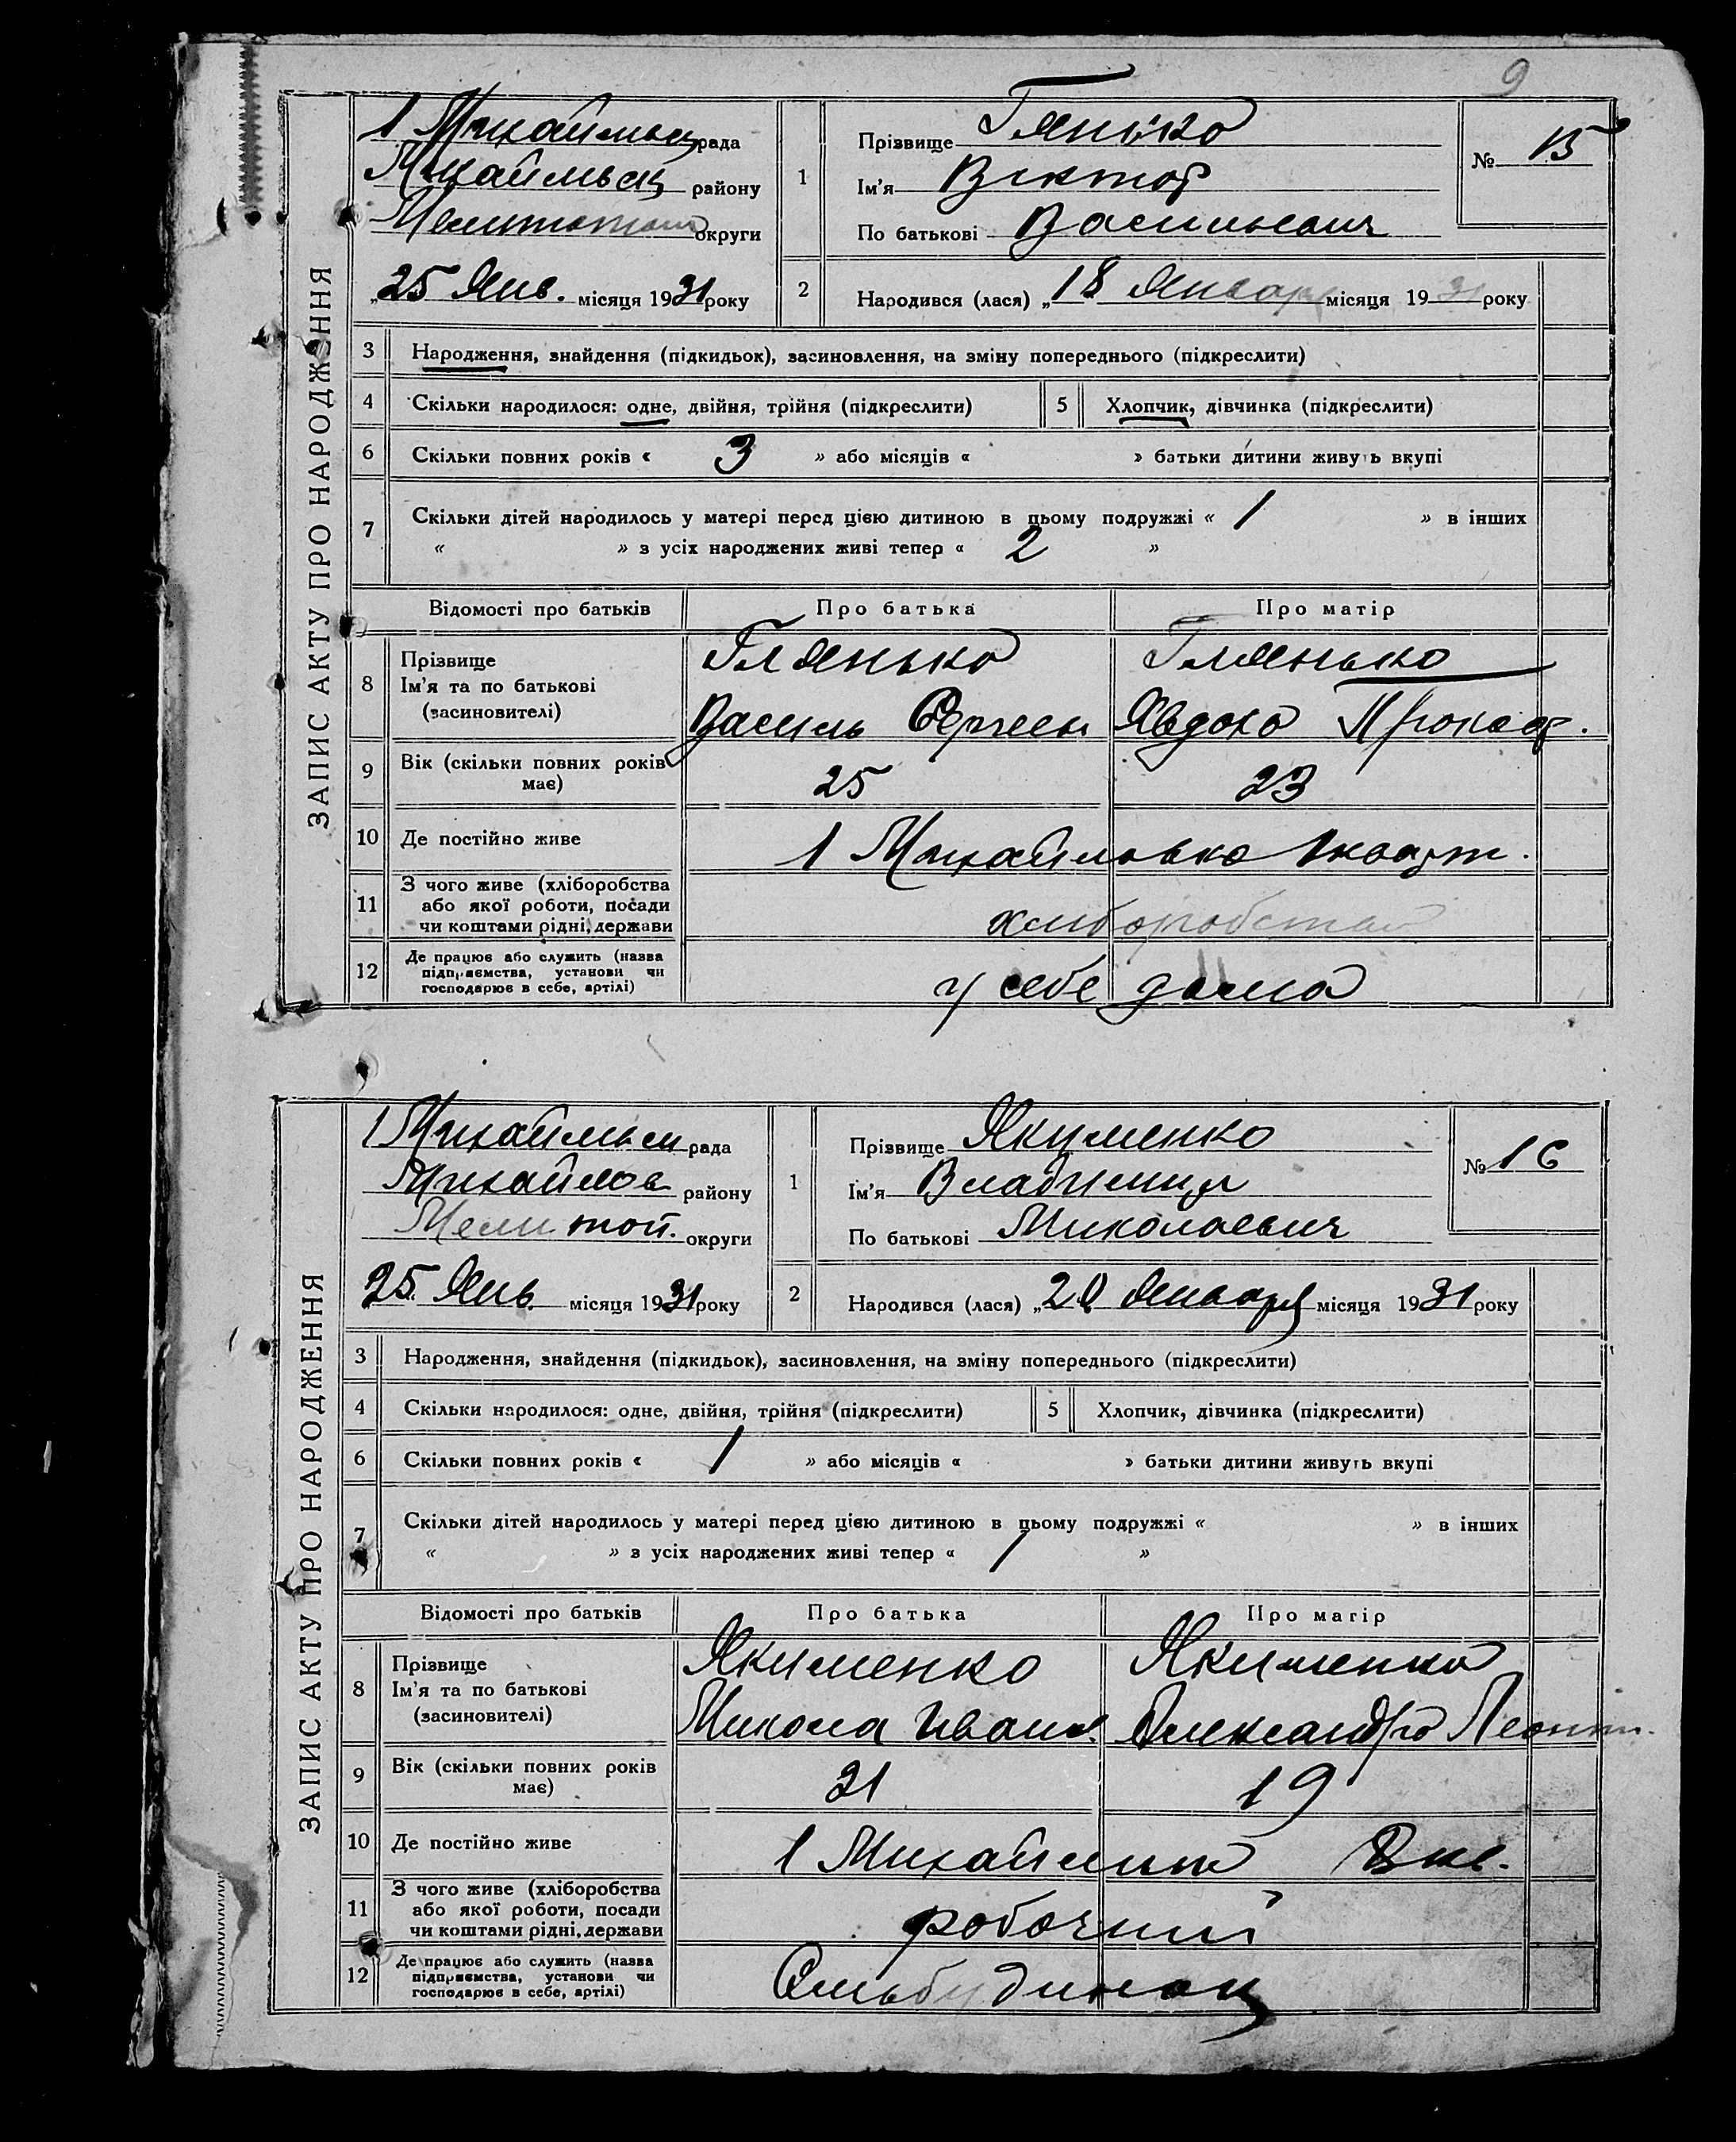 9
ЗАПИС АКТУ ПРО НАРОДЖЕННЯ
1 Михайлівськ рада
району
округи
„25 Янв. місяця 1931 року
1
Прізвище Гянько
Ім'я Віктор
По батькові Васильевич
№ 15
2
Народився (лася) „18 Января місяця 1931 року
3 Народження, знайдення (підкидьок), засиновлення, на зміну попереднього (підкреслити)
4 Скільки народилося: одне, двійня, трійня (підкреслити) 5 Хлопчик, дівчинка (підкреслити)
6 Скільки повних років « 3 » або місяців « » батьки дитини живуть вкупі
7 Скільки дітей народилось у матері перед цією дитиною в цьому подружжі « 1 » в інших
« » з усіх народжених живі тепер « 2 »
Відомості про батьків Про батька Про матір
8 Прізвище Глянько Глянько
Ім'я та по батькові
(засиновителі) Василь Сергеев Явдоха Прокоф.
9 Вік (скільки повних років має) 25 23
10 Де постійно живе 1 Михайловка 1 кварт.
11 З чого живе (хліборобства
або якої роботи, посади
чи коштами рідні, держави хліборобства
12 Де працює або служить (назва
підприємства, установи чи
господарює в себе, артілі) у себе дома
ЗАПИС АКТУ ПРО НАРОДЖЕННЯ
1 рада
Михайлов району
Мелитоп. округи
25 Янв. місяця 1931 року
1
Прізвище Якименко
Ім'я Владимир
По батькові Миколаевич
№ 16
2
Народився (лася) „20 Января місяця 1931 року
3 Народження, знайдення (підкидьок), засиновлення, на зміну попереднього (підкреслити)
4 Скільки народилося: одне, двійня, трійня (підкреслити) 5 Хлопчик, дівчинка (підкреслити)
6 Скільки повних років « 1 » або місяців « » батьки дитини живуть вкупі
7 Скільки дітей народилось у матері перед цією дитиною в цьому подружжі « » в інших
« » з усіх народжених живі тепер « 1 »
Відомості про батьків Про батька Про матір
8 Прізвище Якименко Якименко
Ім'я та по батькові
(засиновителі) Микола Иванов. Александра Леонт.
9 Вік (скільки повних років має) 21 19
10 Де постійно живе 1 кв.
11 З чого живе (хліборобства
або якої роботи, посади
чи коштами рідні, держави робочий
12 Де працює або служить (назва
підприємства, установи чи
господарює в себе, артілі) Сильбудинок